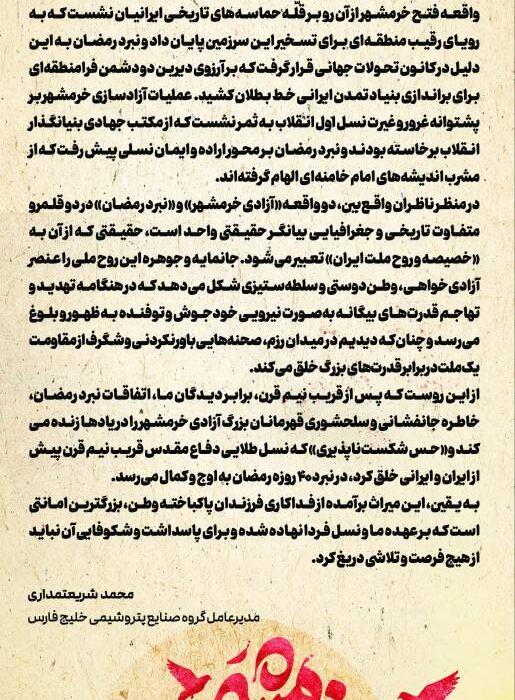 واقعه فتح خرمشهر از آن رو بر قلّه حماسه‌های تاریخی ایرانیان نشست که به
رویای رقیب منطقه‌ای برای تسخیر این سرزمین پایان داد و نبرد رمضان به این
دلیل در کانون تحولات جهانی قرار گرفت که بر آرزوی دیرین دو دشمن فرامنطقه‌ای
برای براندازی بنیاد تمدن ایرانی خط بطلان کشید. عملیات آزادسازی خرمشهر بر
پشتوانه غرور و غیرت نسل اول انقلاب به ثمر نشست که از مکتب جهادی بنیانگذار
انقلاب برخاسته بودند و نبرد رمضان بر محور اراده و ایمان نسلی پیش رفت که از
مشرب اندیشه‌های امام خامنه‌ای الهام گرفته‌اند.
در منظر ناظران واقع‌بین، دو واقعه «آزادی خرمشهر» و «نبرد رمضان» در دو قلمرو
متفاوت تاریخی و جغرافیایی بیانگر حقیقتی واحد است، حقیقتی که از آن به
«خصیصه و روح ملت ایران» تعبیر می‌شود. جانمایه و جوهره این روح ملی را عنصر
آزادی‌خواهی، وطن‌دوستی و سلطه‌ستیزی شکل می‌دهد که در هنگامه تهدید و
تهاجم قدرت‌های بیگانه به‌صورت نیرویی خودجوش و توفنده به ظهور و بلوغ
می‌رسد و چنان‌که دیدیم در میدان رزم، صحنه‌هایی باورنکردنی و شگرف از مقاومت
یک ملت در برابر قدرت‌های بزرگ خلق می‌کند.
از این روست که پس از قریب نیم قرن، برابر دیدگان ما، اتفاقات نبرد رمضان،
خاطره جانفشانی و سلحشوری قهرمانان بزرگ آزادی خرمشهر را در یادها زنده می
کند و «حس شکست‌ناپذیری» که نسل طلایی دفاع مقدس قریب نیم قرن پیش
از ایران و ایرانی خلق کرد، در نبرد ۴۰ روزه رمضان به اوج و کمال می‌رسد.
به یقین، این میراث برآمده از فداکاری فرزندان پاکباخته وطن، بزرگترین امانتی
است که بر عهده ما و نسل فردا نهاده شده و برای پاسداشت و شکوفایی آن نباید
از هیچ فرصت و تلاشی دریغ کرد.
محمد شریعتمداری
مدیرعامل گروه صنایع پتروشیمی خلیج فارس